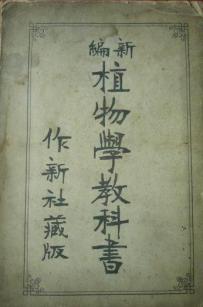 新編
植物學教科書
作新社藏版